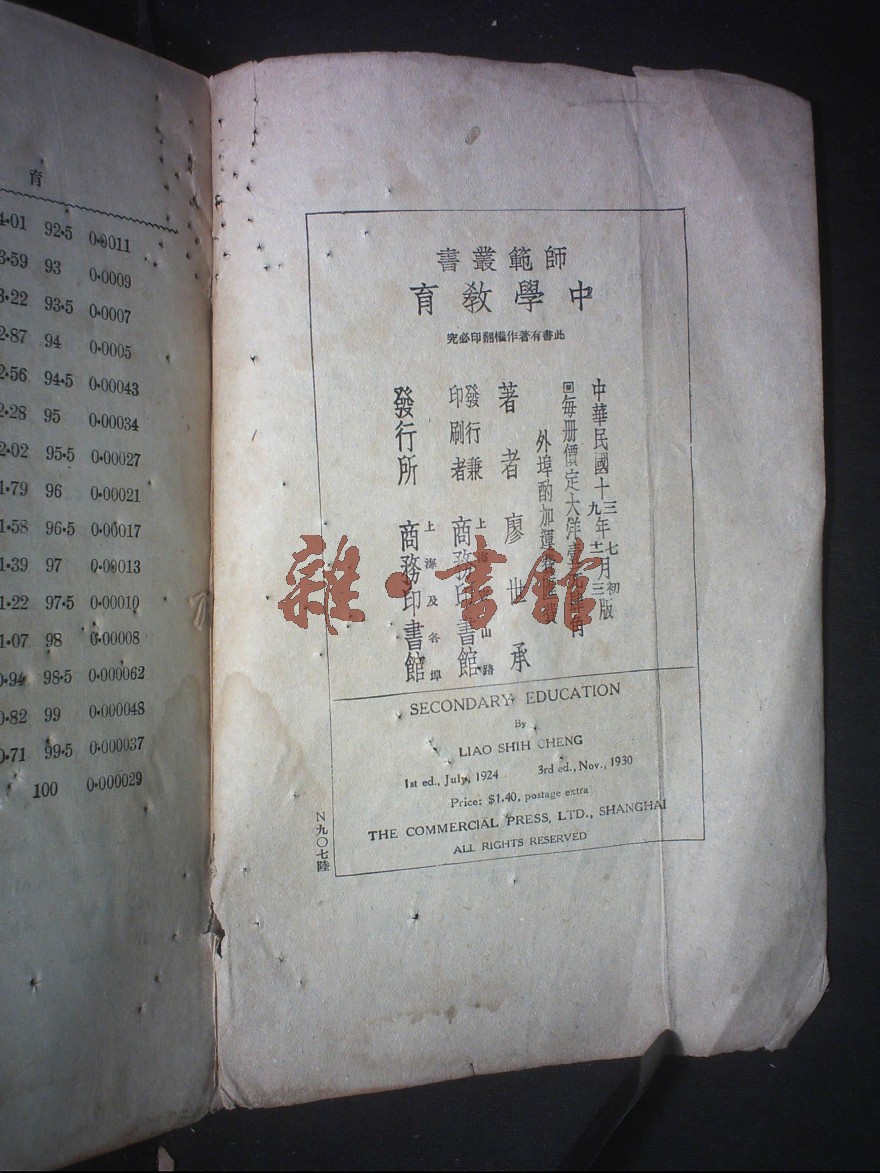 育
4·01 92·5 0·0011
3·59 93 0·0009
3·22 93·5 0·0007
2·87 94 0·0005
2·56 94·5 0·00043
2·28 95 0·00034
2·02 95·5 0·00027
1·79 96 0·00021
1·58 96·5 0·00017
1·39 97 0·00013
1·22 97·5 0·00010
1·07 98 0·00008
0·94 98·5 0·000062
0·82 99 0·000048
0·71 99·5 0·000037
100 0·000029
師範叢書
中學教育
此書有著作權翻印必究
中華民國十三年七月初版
九年十一月三版
回每册價定大洋壹元肆角
外埠酌加運費匯費
著者 廖世承
發行兼印刷者 上海寶山路 商務印書館
發行所 上海及各埠 商務印書館
SECONDARY EDUCATION
By
LIAO SHIH CHENG
1st ed., July, 1924 3rd ed., Nov., 1930
Price: $1.40, postage extra
THE COMMERCIAL PRESS, LTD., SHANGHAI
ALL RIGHTS RESERVED
N九〇七陸
雜·書館